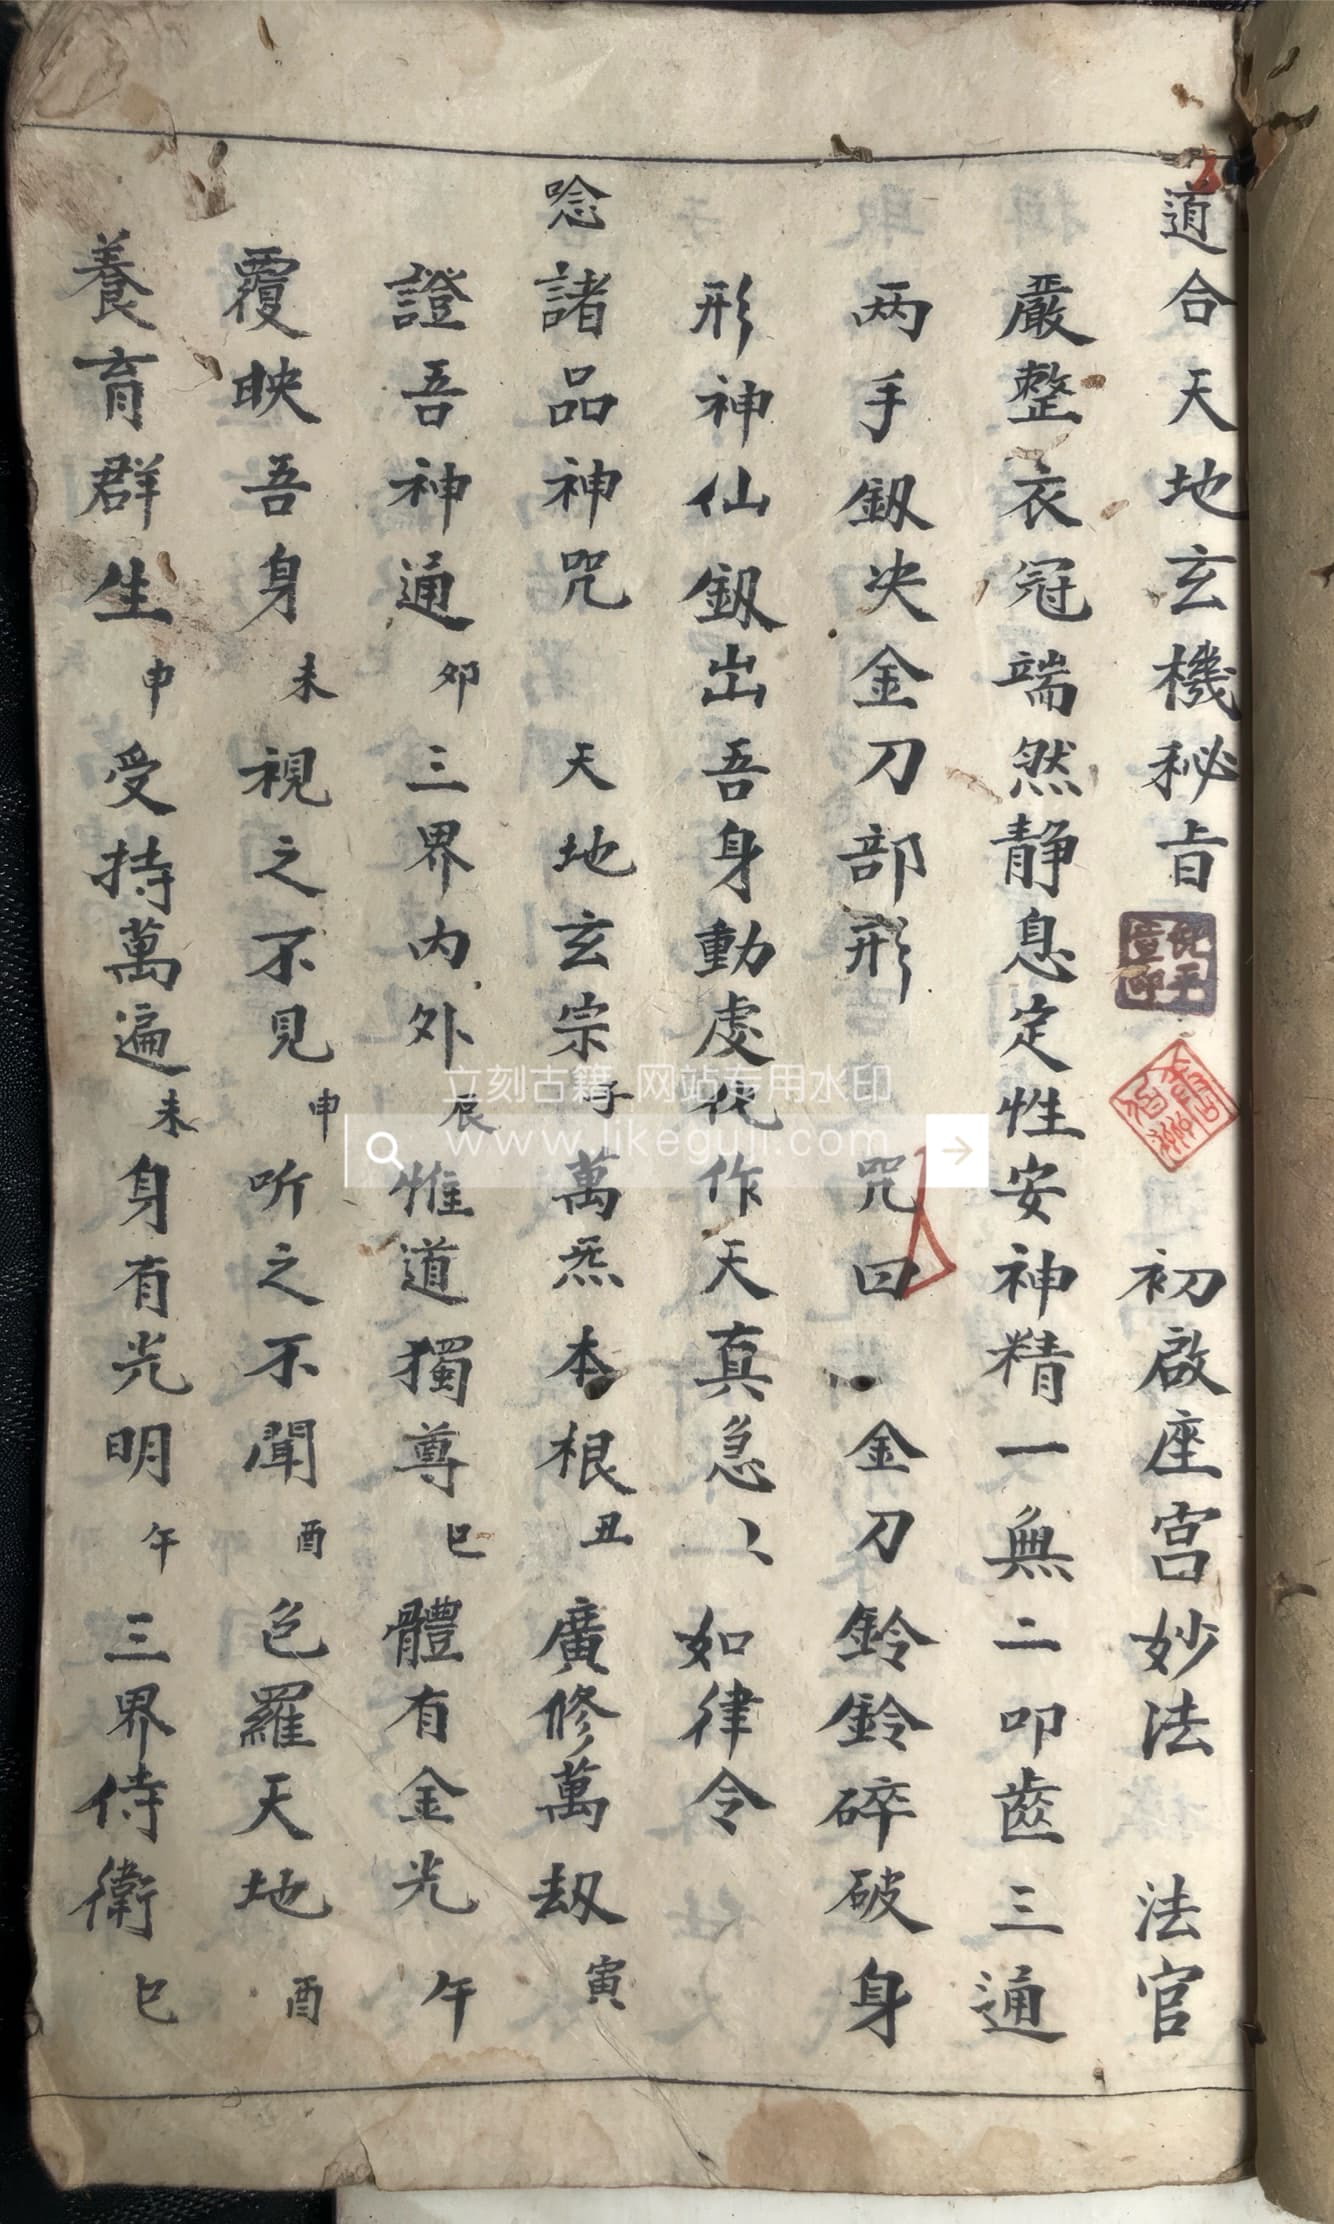 道合天地玄機秘旨 初啟座宮妙法 法官
嚴整衣冠端然静息定性安神精一無二叩齒三通
两手釼决金刀部形 咒曰 金刀鈴鈴碎破身
形神仙釼出吾身動處化作天真急〻如律令
唸諸品神咒 天地玄宗子萬炁本根丑廣修萬劫寅
證吾神通夘三界内外辰惟道獨尊巳體有金光午
覆映吾身未視之不見申听之不聞酉包羅天地酉
養育群生申受持萬遍未身有光明午三界侍衛巳
立刻古籍 网站专用水印
www.likeguji.com